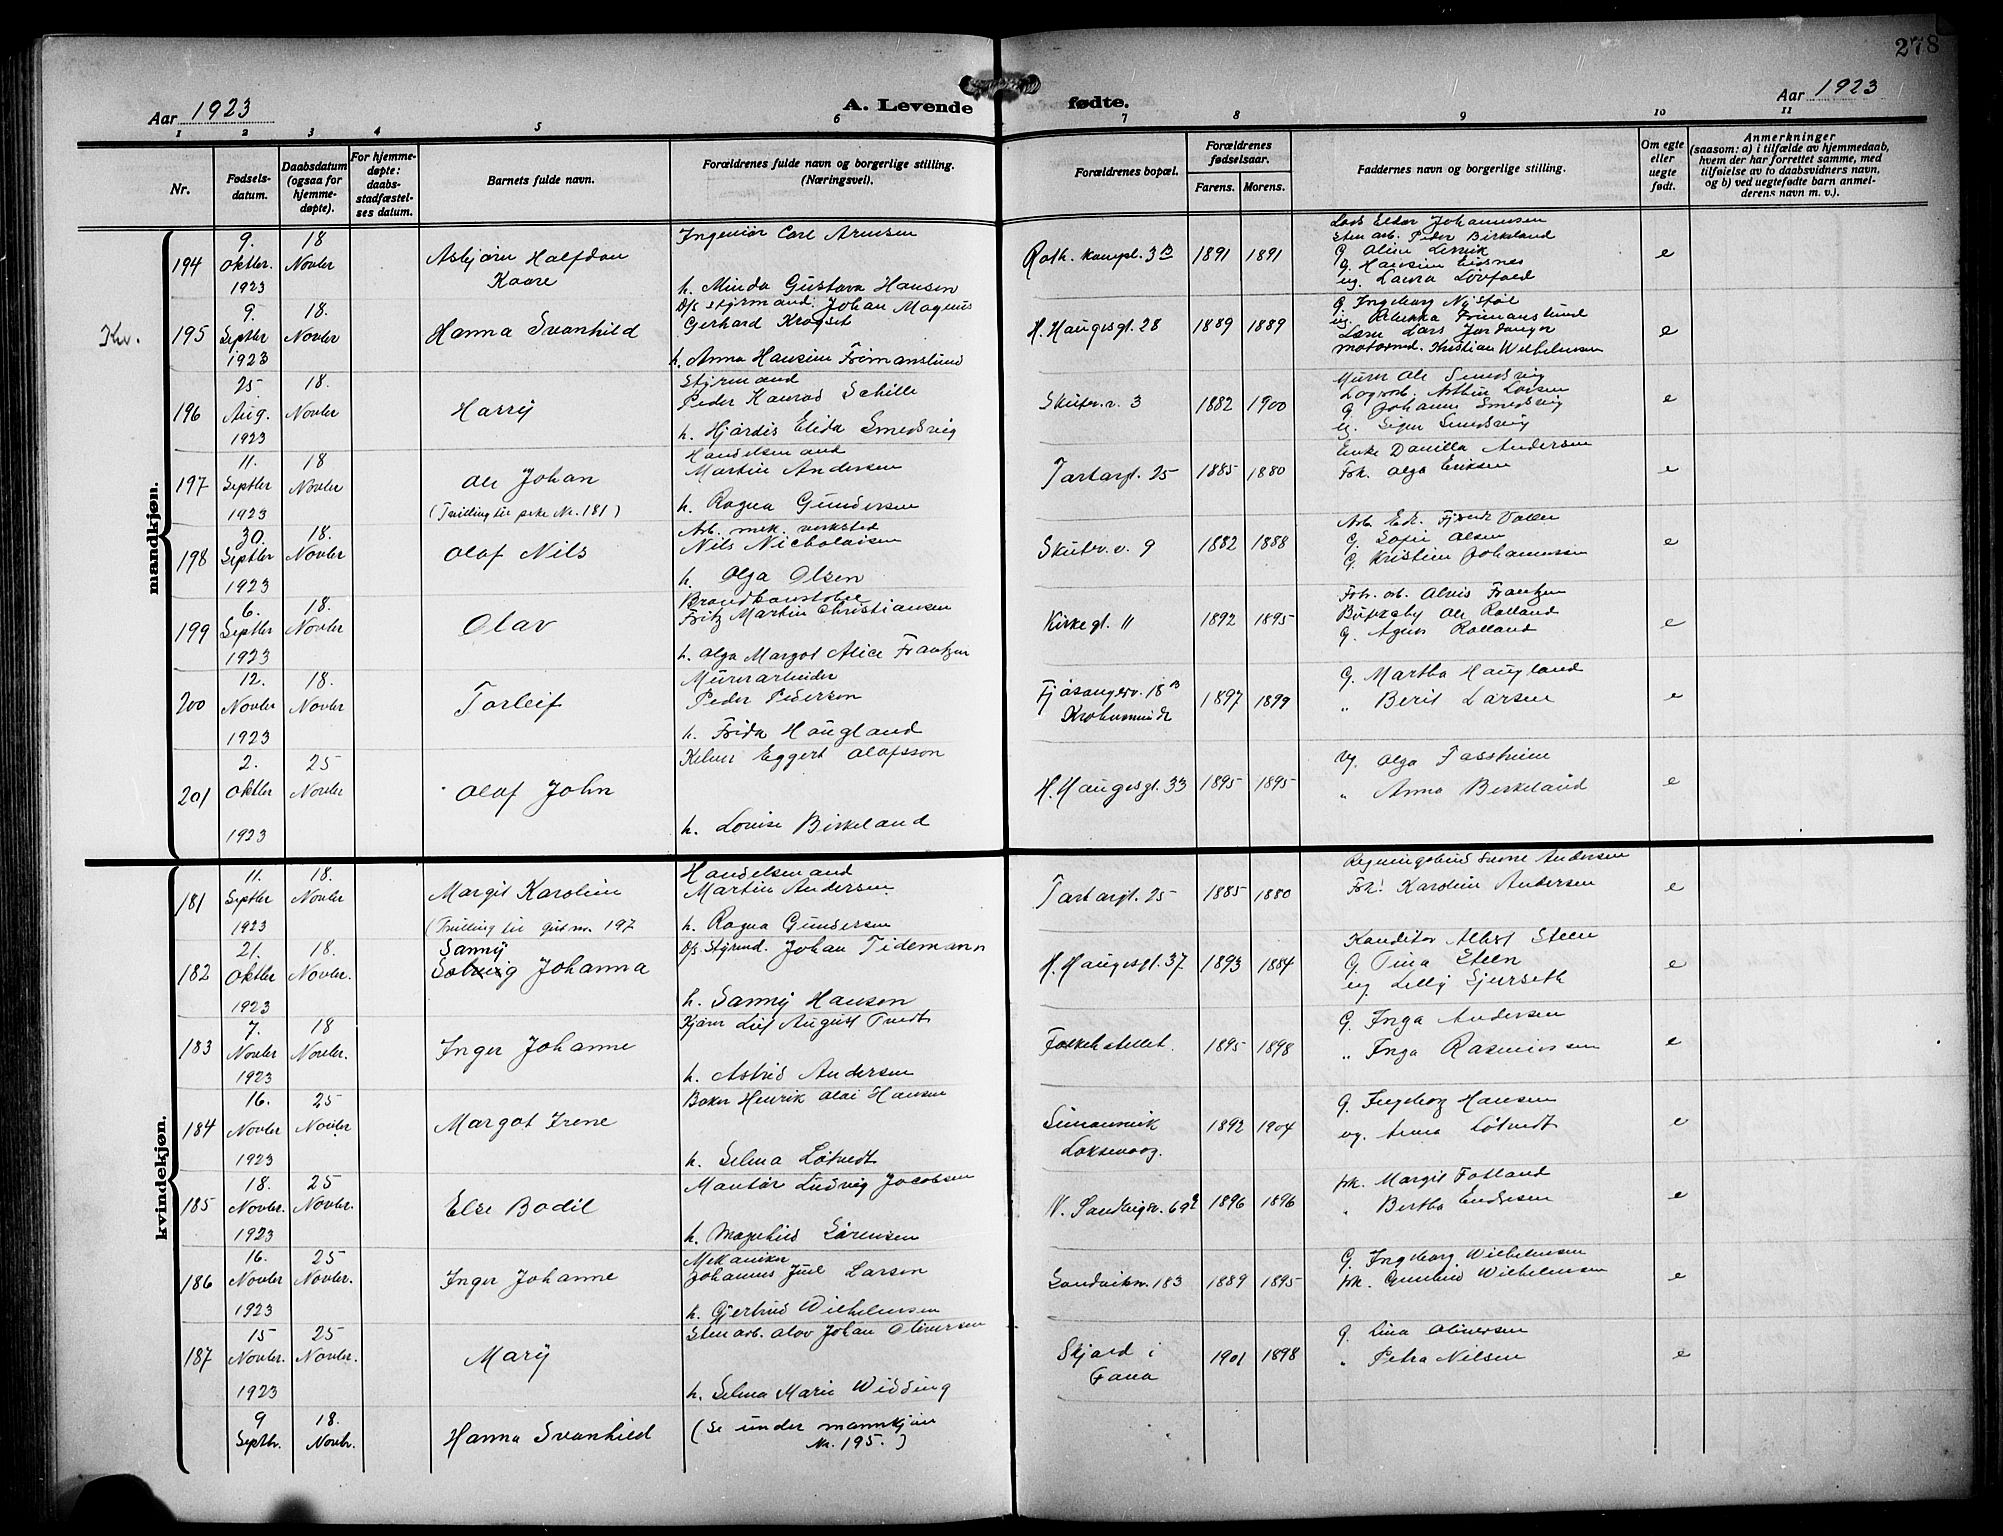 278
Aar 1923
A. Levende
fødte.
Aar 1923
1 2 3 4 5 6 7 8 9 10 11
Nr.
Fødsels-
datum.
Daabsdatum
(ogsaa for
hjemme-
døpte).
For hjemme-
døpte:
daabs-
stadfæstel-
ses datum.
Barnets fulde navn.
Forældrenes fulde navn og borgerlige stilling.
(Næringsvei).
Forældrenes bopæl.
Forældrenes
fødselsaar.
Farens. Morens.
Faddernes navn og borgerlige stilling.
Om egte
eller
uegte
født.
Anmerkninger
(saasom: a) i tilfælde av hjemmedaab,
hvem der har forrettet samme, med
tilføielse av to daabsvidners navn,
og b) ved uegtefødte barn anmel-
derens navn m. v.).
mandkjøn.
194
9.
Oktbr.
1923
18
Novbr
Asbjørn Halfdan
Kaare
Ingeniør Carl Arnesen
h. Minda Gustava Hansen
1891 1891
Johannesen
Sten arb. Peder Birkeland
e
Kv.
195
9.
Septbr
1923
18.
Novbr
Hanna Svanhild
Styrmand. Johan Magnus
Gerhard
h. Anna Hansine Frimanslund
H. Haugesgt. 28
1889 1889
G. Ingeborg
Lars
Kristian Wilhelmsen
e
196
25
Aug.
1923
18.
Novbr
Harry
Styrmand
Peder Konrad Schille
h. Hjørdis Elida Smedsvig
Skutev. v. 3
1882 1900
Murer Ole Smedsvig
Arthur Larsen
G. Johanne Smedsvig
ug. Smedsvig
e
197
11.
Septbr
1923
18
Novbr
Ole Johan
(Tvilling til pike Nr. 181)
Handelsmand
Martin Andersen
h. Ragna Gundersen
Tartargt. 25
1885 1880
Enke Danilla Andersen
Frk. Olga Eriksen
e
198
30.
Septbr
1923
18.
Novbr
Olaf Nils
Arb. mek. verksted
Nils Nicholaisen
h. Olga Olsen
Skutev. v. 9
1882 1888
G. Sofie Olsen
G. Kristine Johannesen
e
199
6.
Septbr
1923
18.
Novbr
Olav
Brandkonstabel
Fritz Martin Christiansen
h. Olga Margot Alice Frantzen
Kirkegt. 11
1892 1895
Frantzen
Ole Rolland
G. Agnes Rolland
e
200
12.
Novbr
1923
18.
Novbr
Torleif
Murerarbeider
Peder Pederson
h. Frida Haugland
Fjøsangerv. 18 B
1897 1899
G. Martha Haugland
„ Berit Larsen
e
201
2.
Oktbr
1923
25
Novbr
Olaf John
Kelner Eggert Olafsson
h. Lovise Birkeland
H. Haugesgt. 33
1895 1895
Ug. Olga
„ Anna Birkeland
e
kvindekjøn.
181
11.
Septbr
1923
18.
Novbr
Margit Karoline
(Tvilling til gut nr. 197
Handelsmand
Martin Andersen
h. Ragna Gundersen
Tartargt. 25
1885 1880
Andersen
Frk. Karoline Andersen
e
182
21.
Oktbr
1923
18.
Novbr.
Sanny
Solveig Johanna
Styrmd. Johan Tidemann
h. Sanny Hanson
H. Haugesgt. 37
1893 1884
Konditor Albert Steen
G. Tina Steen
ug. Lilly Gjerseth
e
183
7.
Novbr
1923
18
Novbr.
Inger Johanne
Leif August Tvedt
h. Astrid Andersen
1895 1898
G. Inga Andersen
„ Inga Rasmussen
e
184
16.
Novbr
1923
25
Novbr
Margot Irene
Baker Henrik Olai Hansen
h. Selma Løtvedt
Simonsvik
Laksevaag.
1892 1904
G. Ingeborg Hansen
ug. Anna Løtvedt
e
185
18.
Novbr.
1923
25
Novbr.
Else Bodil
Montør Ludvig Jacobsen
h. Magnhild Sørensen
1896 1896
frk. Margit Fotland
„ Bertha Endresen
e
186
16.
Novbr
1923
25
Novbr.
Inger Johanne
Mekaniker
Johannes Juul Larsen
h. Gjertrud Wilhelmsen
Sandviksv. 183
1889 1895
G. Ingeborg Wilhelmsen
frk. Gunhild Wilhelmsen
e
187
15
Novbr.
1923
25
Novbr.
Mary
Sten arb. Olav Johan Olinersen
h. Selma Marie Widding
Skjold i
Fana
1901 1898
G. Lina Olinersen
„ Petra Nilsen
e
9
Septbr.
18.
Novbr.
Hanna Svanhild
(Se under mannkjøn
Nr. 195.)